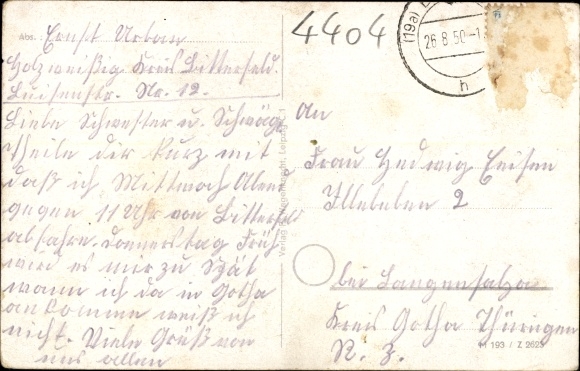 Abs. Ernst Urban
Holzweißig Kreis Bitterfeld.
Luisenstr. No. 12.
Liebe Schwester u. Schwäg
Theile dir kurz mit
daß ich Mittwoch Abend
gegen 11 Uhr von Bitterfeld
abfahre. Donnerstag Früh
wird es mir zu Spät
wann ich da in Gotha
ankomme weiß ich
nicht. Viele Grüß von
uns allen
4404
(19a)
26.8.50.-1
h
An
Frau Hedwig
Illeben 2
bei Langensalza
Kreis Gotha Thüringen
R. Z.
M 193 / Z 2623